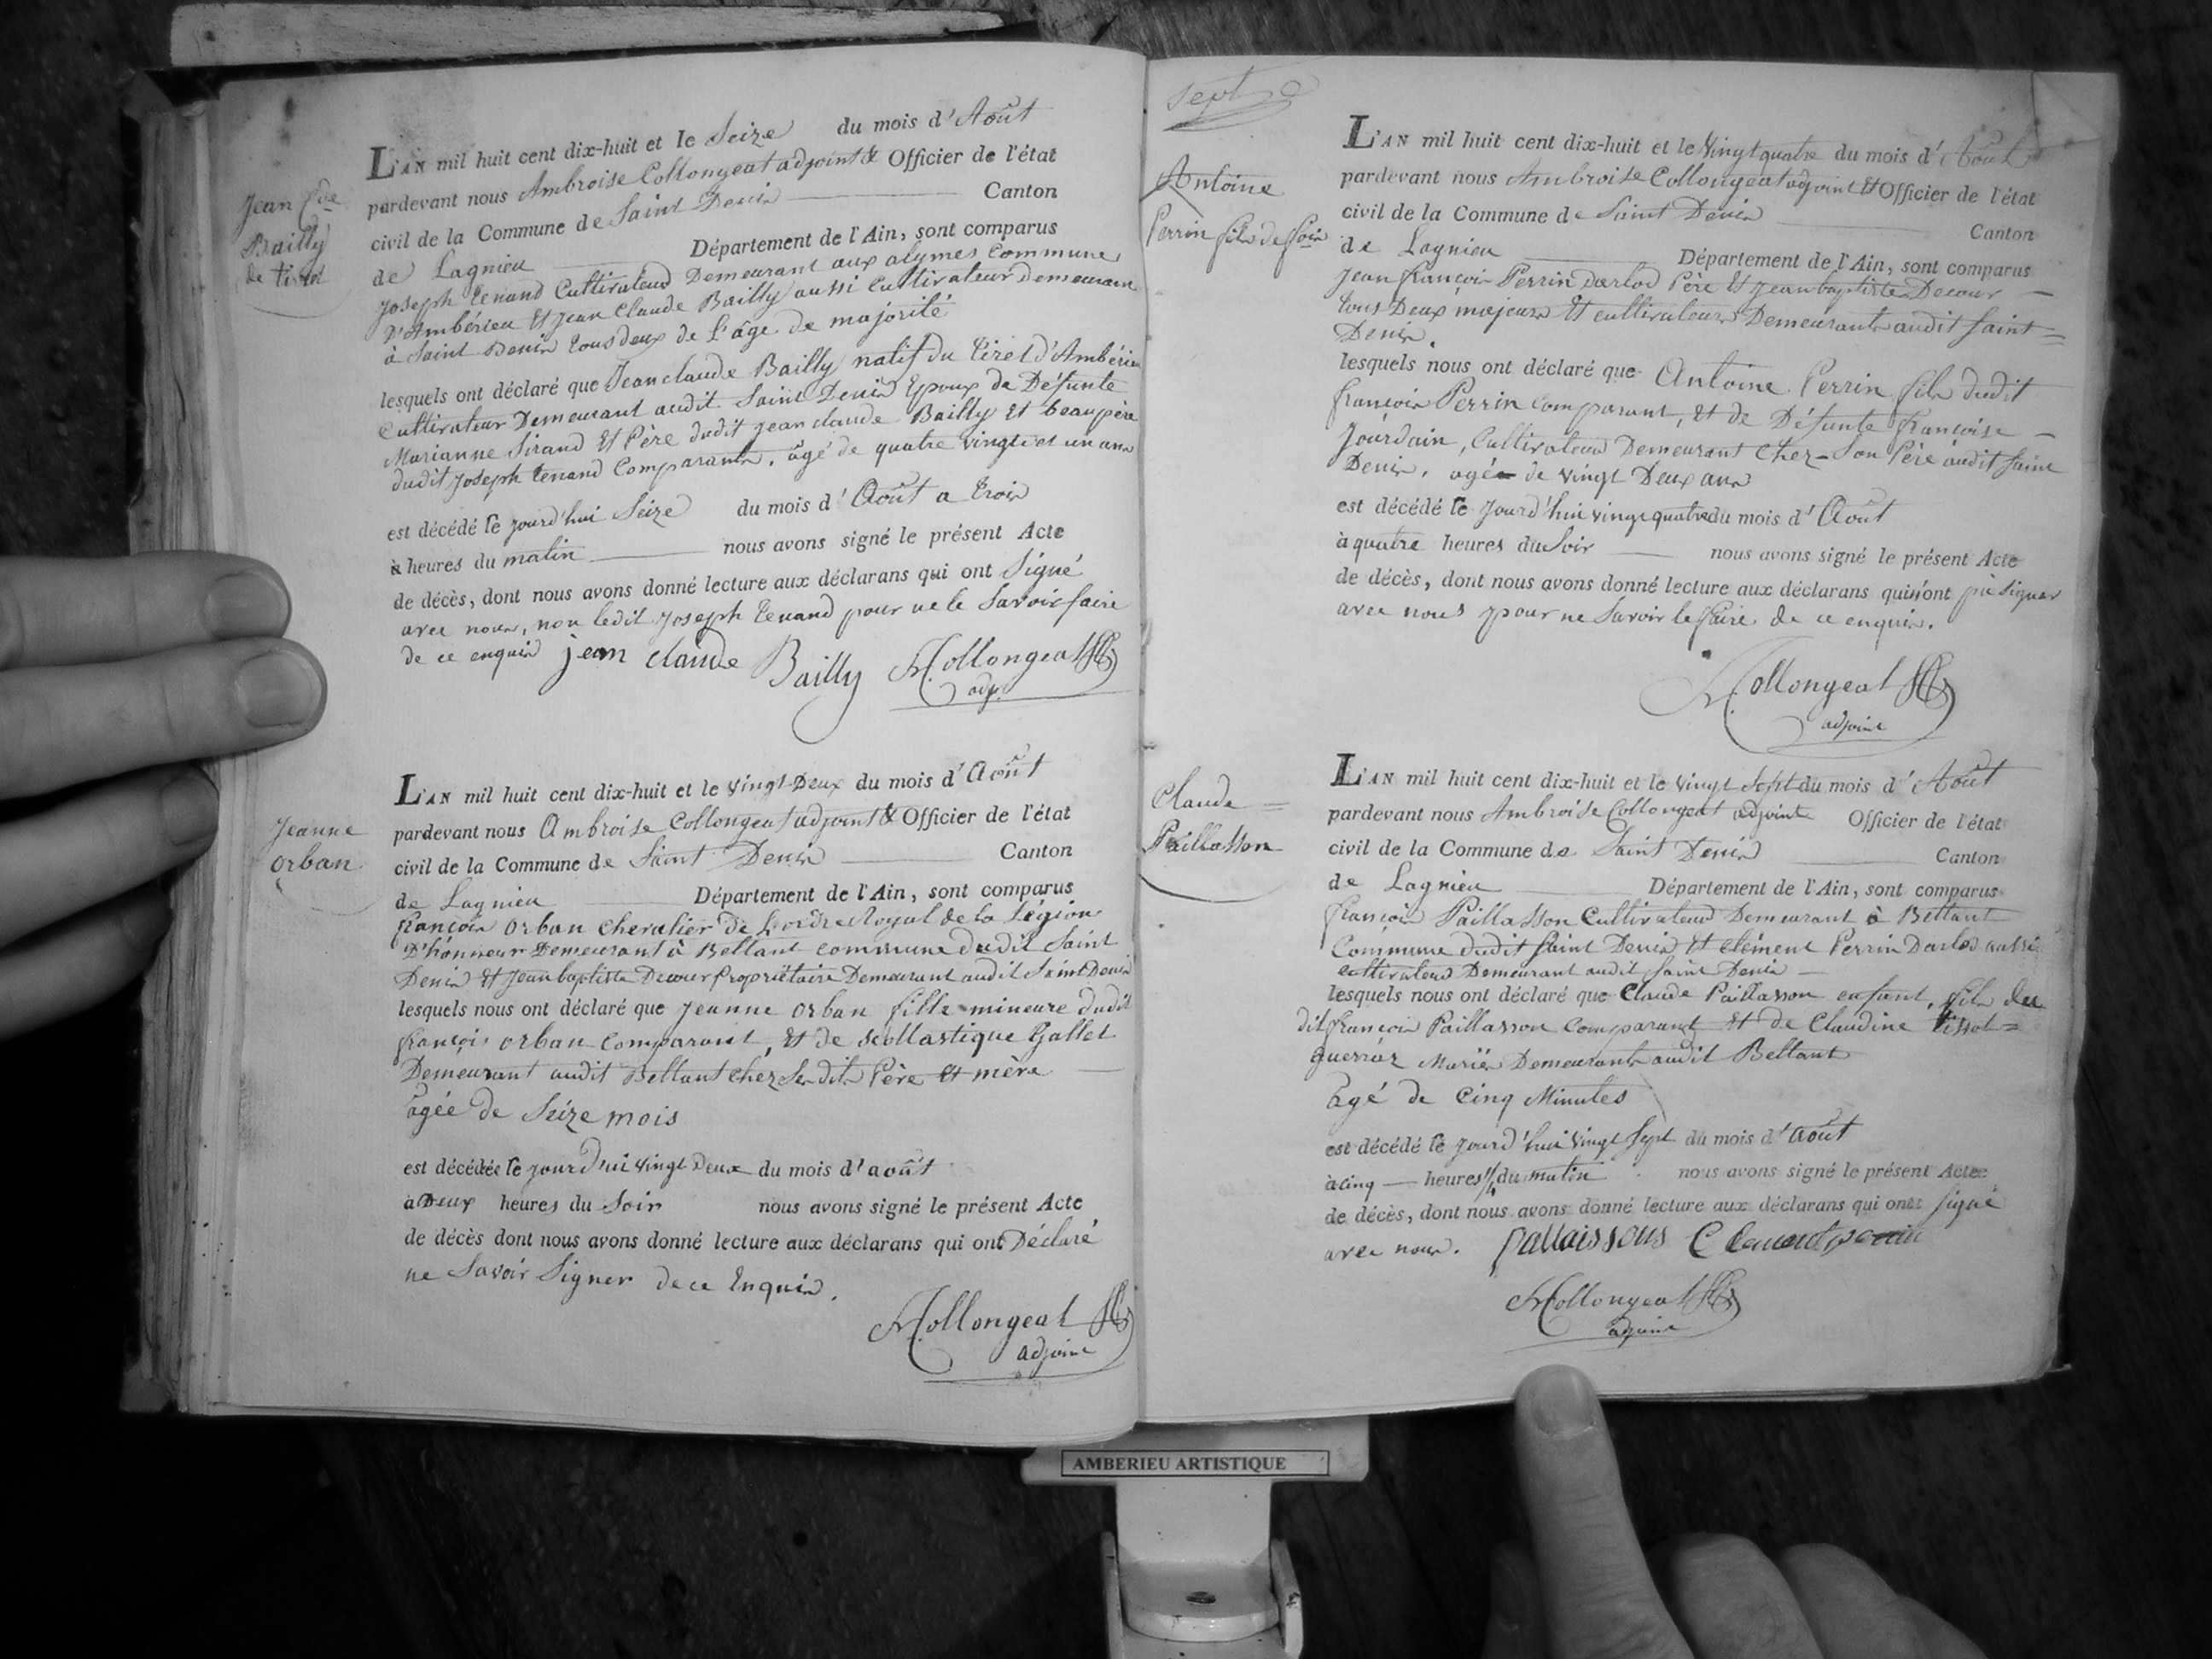 Jean Cde
Bailly
de tiret
L'AN mil huit cent dix-huit et le Seize du mois d'Août
pardevant nous Ambroise Collongeat adjoint & Officier de l'état
civil de la Commune de Saint Denis Canton
de Lagnieu Département de l'Ain, sont comparus
Joseph Tenand Cultivateur Demeurant aux alymes Commune
D'Ambérieu Et Jean Claude Bailly aussi Cultivateur demeurant
à Saint Denis tous deux de l'âge de majorité
lesquels ont déclaré que Jean claude Bailly natif du tiret d'Ambérieu
Cultivateur Demeurant audit Saint Denis Epoux de Défunte
Marianne Sirand Et Père dudit Jean claude Bailly Et beaupère
dudit Joseph Tenand Comparants, âgé de quatre vingts et un ans
est décédé le jourd'hui Seize du mois d'Août a trois
à heures du matin nous avons signé le présent Acte
de décès, dont nous avons donné lecture aux déclarans qui ont Signé
avec nous, non ledit Joseph Tenand pour ne le Savoir faire
de ce enquis jean claude Bailly Collongeat
adj.
Jeanne
orban
L'AN mil huit cent dix-huit et le vingt-Deux du mois d'Août
pardevant nous Ambroise Collongeat adjoint & Officier de l'état
civil de la Commune de Saint Denis Canton
de Lagnieu Département de l'Ain, sont comparus
françois orban chevalier de L'ordre Royal de la Légion
D'honneur Demeurant à Bettant commune dudit Saint
Denis Et Jean baptiste Decour propriétaire Demeurant audit Saint Denis
lesquels nous ont déclaré que Jeanne orban fille mineure dudit
françois orban Comparant, Et de Scollastique Gallet
Demeurant audit Bettant chez Sesdits Père et mère
âgée de Seize mois
est décédée le jourd'ui vingt Deux du mois d'août
à Deux heures du Soir nous avons signé le présent Acte
de décès dont nous avons donné lecture aux déclarans qui ont Déclaré
ne Savoir Signer de ce Enquis.
Collongeat
adjoint
Sept
Antoine
Perrin fils de fcois
L'AN mil huit cent dix-huit et le Vingt quatre du mois d'Août
pardevant nous Ambroise Collongeat adjoint Et Officier de l'état
civil de la Commune de Saint Denis Canton
de Lagnieu Département de l'Ain, sont comparus
Jean françois Perrin Darlod Père Et Jean baptiste Decour
tous Deux majeurs Et cultivateurs Demeurants audit Saint=
Denis.
lesquels nous ont déclaré que Antoine Perrin fils dudit
françois Perrin comparant, Et de Défunte françoise
Jourdain, Cultivateur Demeurant Chez Son Père audit Saint
Denis, agé de vingt Deux ans
est décédé le jourd'hui vingt quatre du mois d'Août
à quatre heures du Soir nous avons signé le présent Acte
de décès, dont nous avons donné lecture aux déclarans qui n'ont pu Signer
avec nous pour ne Savoir le faire de ce enquis.
Collongeat
adjoint
Claude
Paillasson
L'AN mil huit cent dix-huit et le vingt Sept du mois d'Août
pardevant nous Ambroise Collongeat adjoint Officier de l'état
civil de la Commune de Saint Denis Canton
de Lagnieu Département de l'Ain, sont comparus
françois Paillasson Cultivateur Demeurant à Bettant
Commune dudit Saint Denis Et Clément Perrin Darlod aussi
cultivateur Demeurant audit Saint Denis
lesquels nous ont déclaré que Claude Paillasson enfant, fils du
dit françois Paillasson Comparant Et de Claudine tissot=
guerraz Mariés Demeurants audit Bettant
âgé de Cinq Minutes
est décédé le jourd'hui vingt Sept du mois d'Août
à cinq heures 1/4 du matin nous avons signé le présent Acte
de décès, dont nous avons donné lecture aux déclarans qui ont Signé
avec nous. pallaissous Clement perrin
Collongeat
adjoint
AMBERIEU ARTISTIQUE